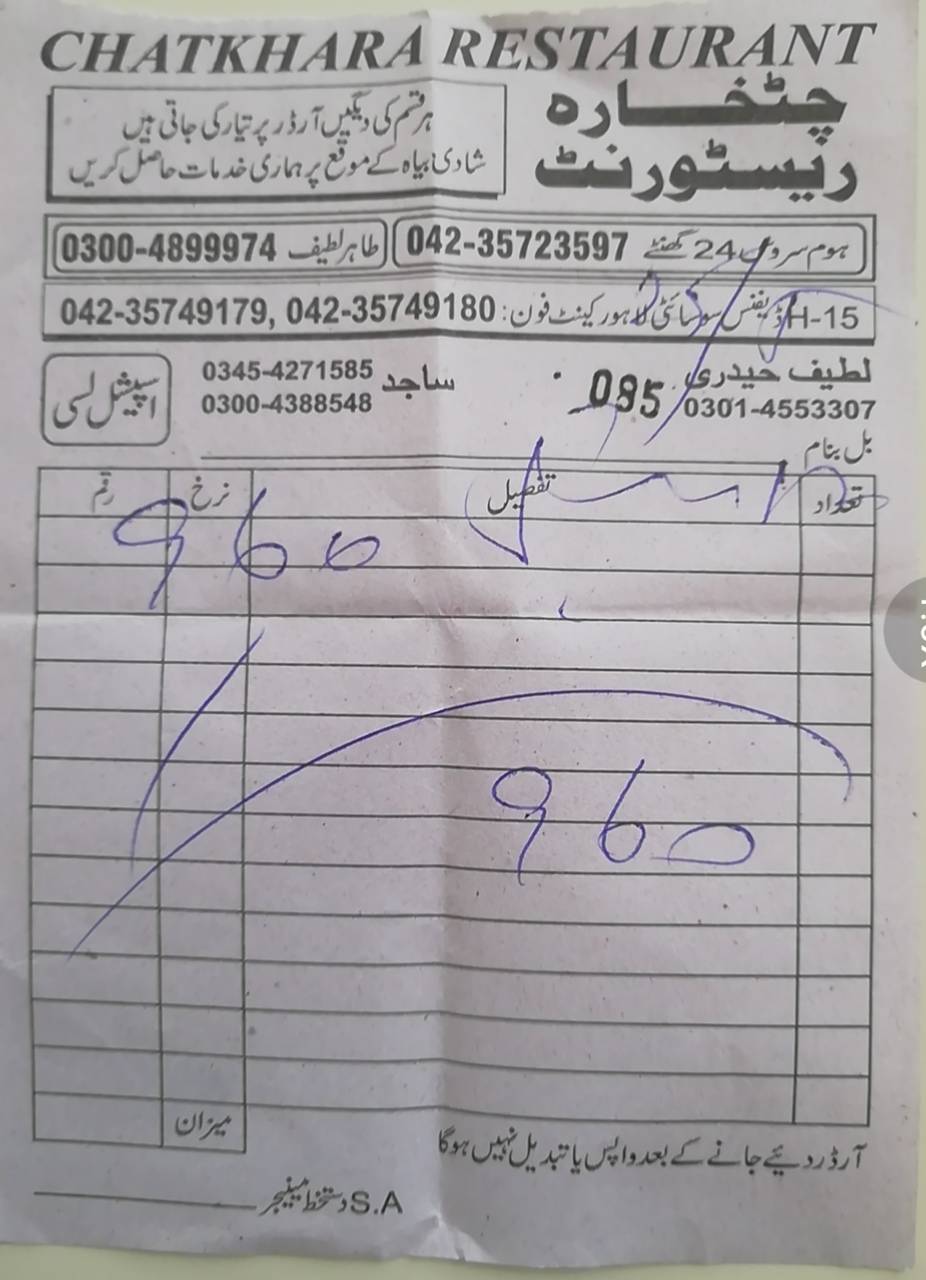 CHATKHARA RESTAURANT
چٹخارہ
ریسٹورنٹ
ہر قسم کی دیگیں آرڈر پر تیار کی جاتی ہیں
شادی بیاہ کے موقع پر ہماری خدمات حاصل کریں
ہوم سروس 24 گھنٹے 042-35723597
طاہر لطیف 0300-4899974
H-15 ڈیفنس سوسائٹی لاہور کینٹ فون: 042-35749180 ,042-35749179
لطیف حیدری
0301-4553307
095
ساجد
0345-4271585
0300-4388548
اسپیشل لسی
بل بنام
تعداد تفصیل نرخ رقم
960
960
میزان
آرڈر دئیے جانے کے بعد واپس یا تبدیل نہیں ہوگا
S.A دستخط مینیجر